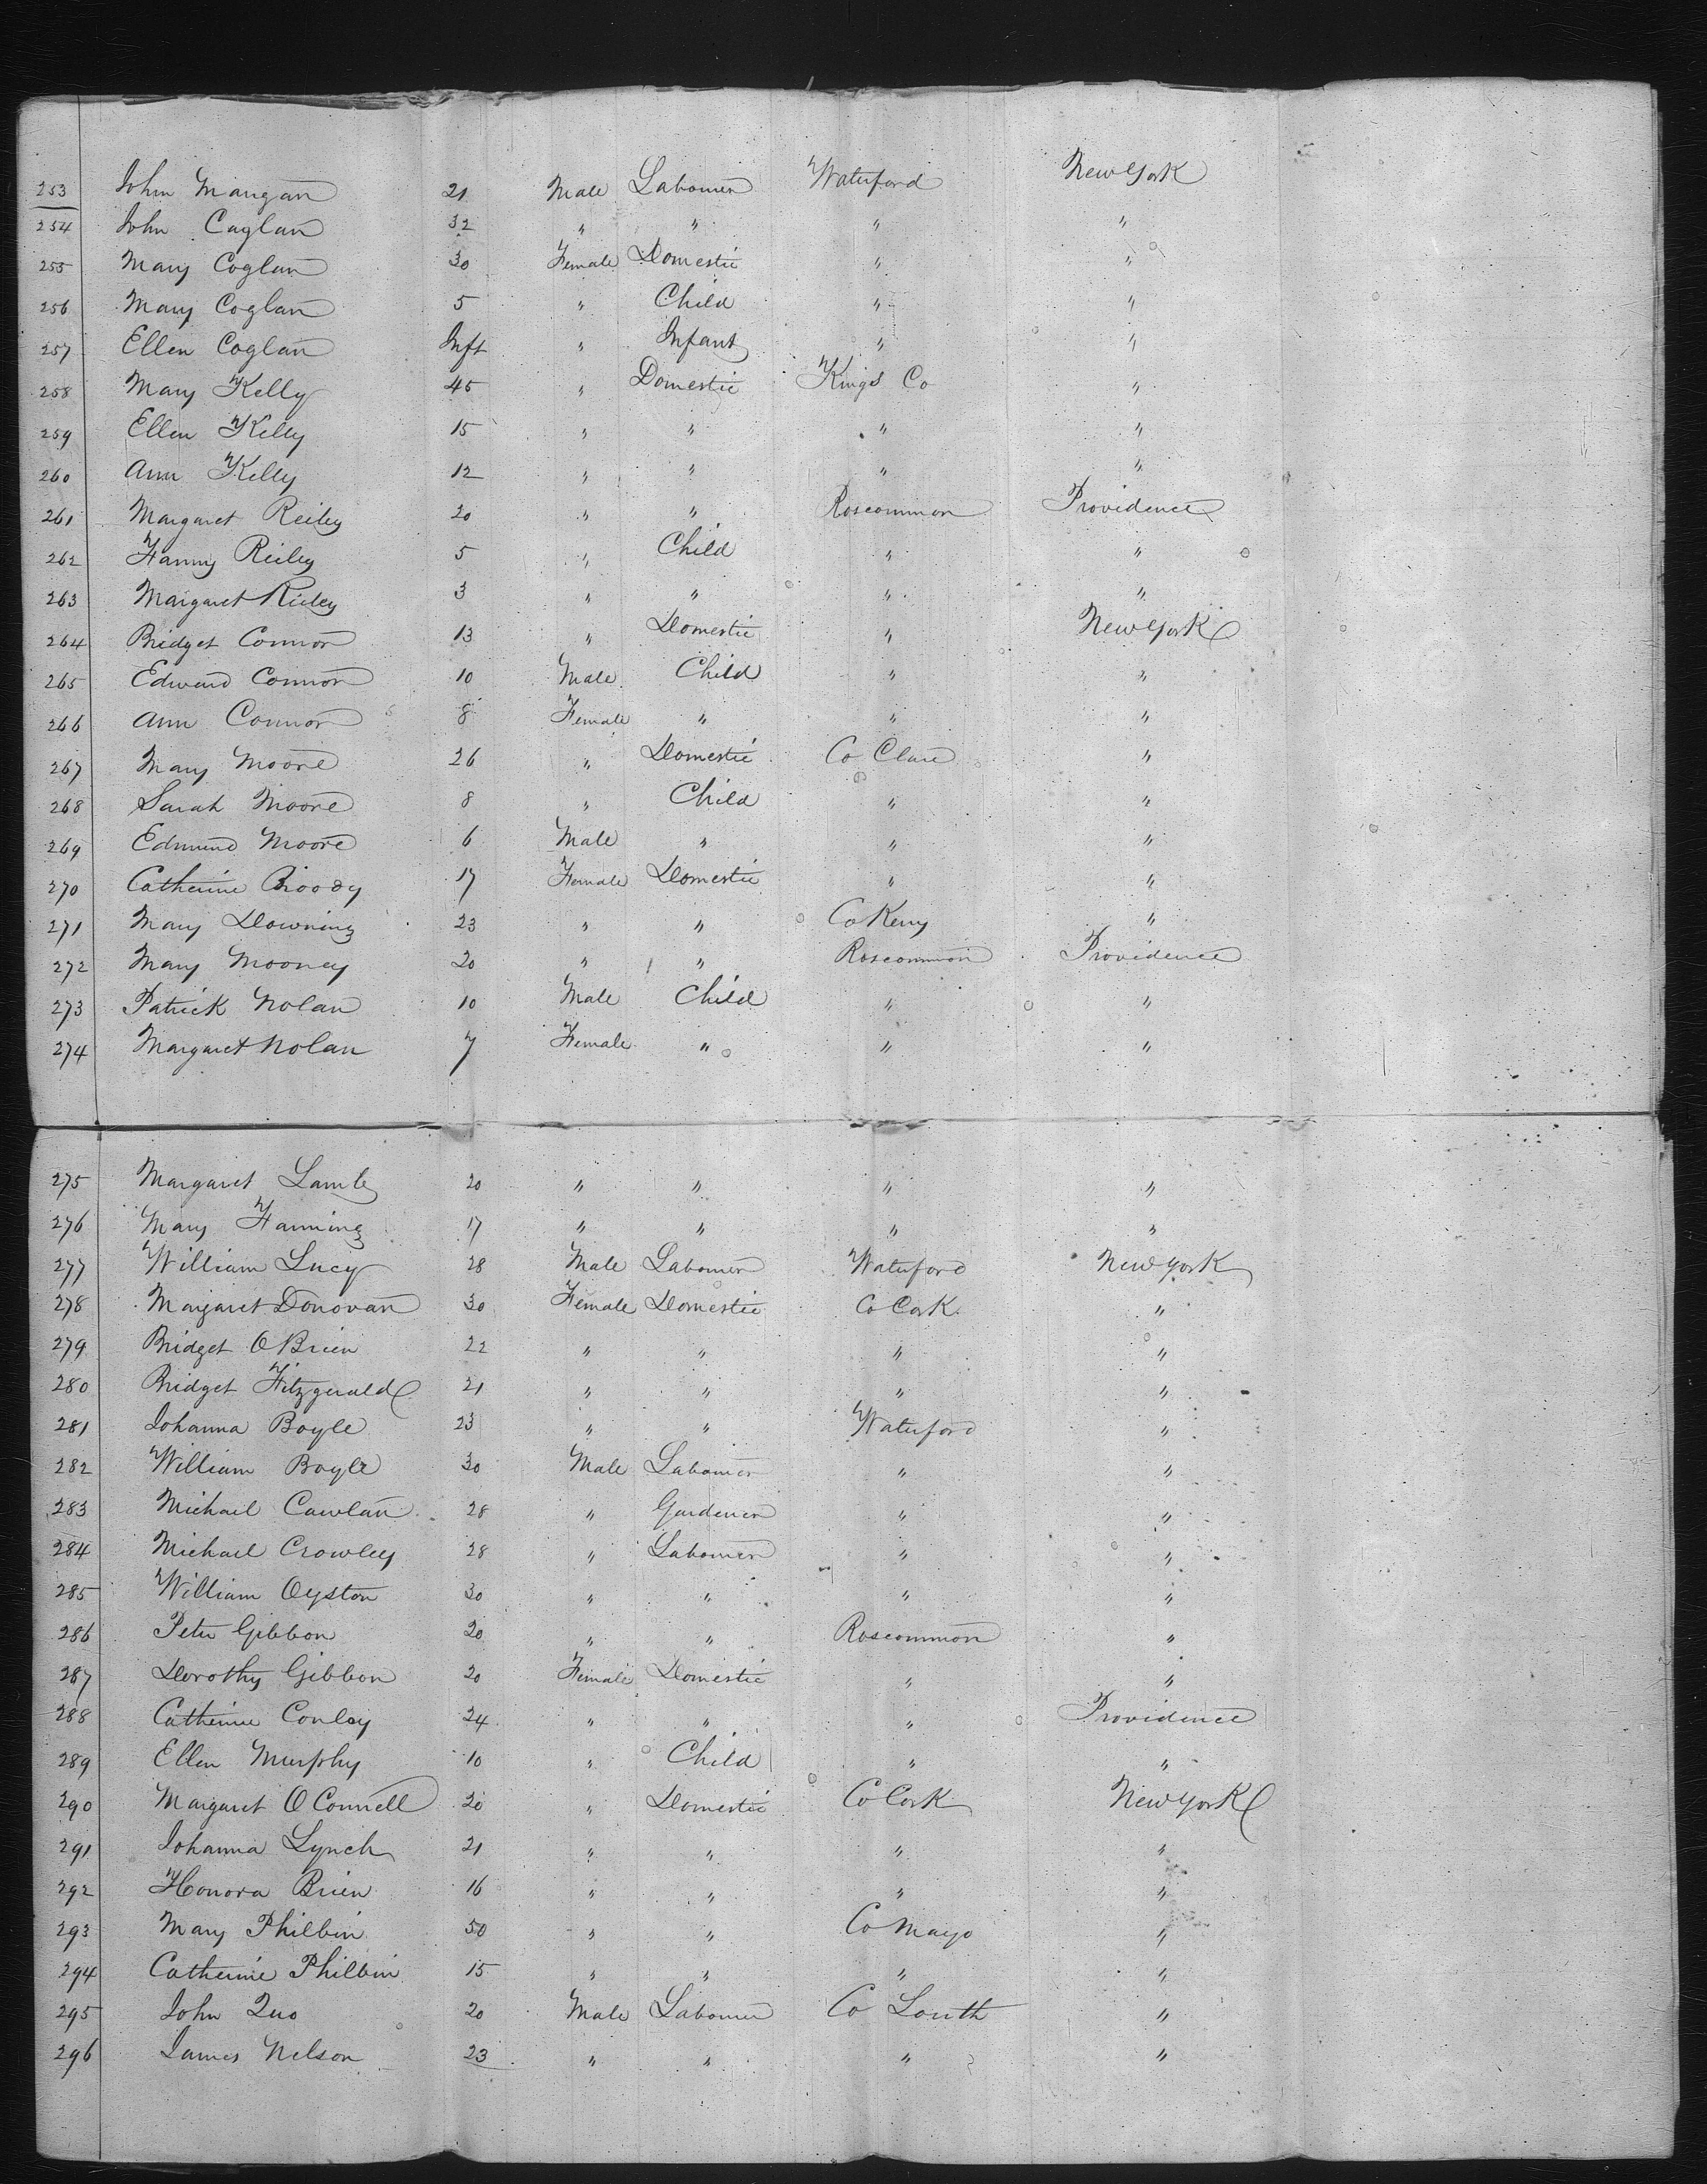 253 John Mangan 21 Male Labourer Waterford New York
254 John Caglan 32 " " " "
255 Mary Coglan 30 Female Domestic " "
256 Mary Coglan 5 " Child " "
257 Ellen Coglan Inft " Infant " "
258 Mary Kelly 45 " Domestic Kings Co "
259 Ellen Kelly 15 " " " "
260 Ann Kelly 12 " " " "
261 Margaret Reiley 20 " " Roscommon Providence
262 Fanny Reiley 5 " Child " "
263 Margaret Rieley 3 " " " "
264 Bridget Connor 13 " Domestic " New York
265 Edward Connor 10 Male Child " "
266 Ann Connor 8 Female " " "
267 Mary Moore 26 " Domestic Co Clare "
268 Sarah Moore 8 " Child " "
269 Edmund Moore 6 Male " " "
270 Catherine 17 Female Domestic " "
271 Mary Downing 23 " " Co Kerry "
272 Mary Mooney 20 " " Roscommon Providence
273 Patrick Nolan 10 Male Child " "
274 Margaret Nolan 7 Female " " "
275 Margaret Lamb 20 " " " "
276 Mary Fanning 17 " " " "
277 William Lucy 28 Male Labourer Waterford New York
278 Margaret Donovan 30 Female Domestic Co Cork "
279 Bridget O Brien 22 " " " "
280 Bridget Fitzgerald 21 " " " "
281 Johanna Boyle 23 " " Waterford "
282 William Boyle 30 Male Labourer " "
283 Michael Cawlan 28 " Gardener " "
284 Michael Crowley 28 " Labourer " "
285 William Oyston 30 " " " "
286 Peter Gibbon 20 " " Roscommon "
287 Dorothy Gibbon 20 Female Domestic " "
288 Catherine Conley 24 " " " Providence
289 Ellen Murphy 10 " Child " "
290 Margaret O Connell 20 " Domestic Co Cork New York
291 Johanna Lynch 21 " " " "
292 Honora Brien 16 " " " "
293 Mary Philbin 50 " " Co Mayo "
294 Catherine Philbin 15 " " " "
295 John 20 Male Labourer Co Louth "
296 James Nelson 23 " " " "